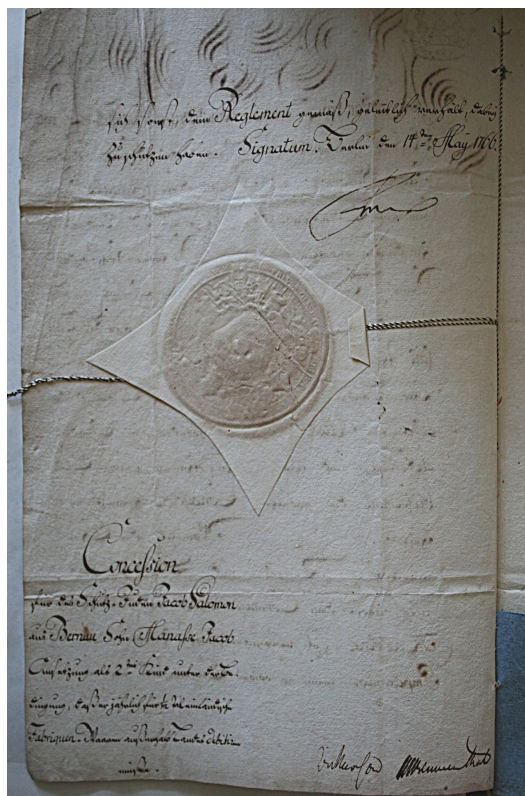 sich sonst, dem Reglement gemäß, gebührlich verhält, dabey
zu schützen haben. Signatum Berlin den 14ten May 1766.
Concession
für des Schutz-Juden Jacob Salomon
aus Bernau Sohn Manasse Jacob
Ansetzung als 2tes Kind unter der Be-
dingung, daß er jährlich für inländische
Fabriquen-Waaren außerhalb Landes debitiren
müsse.